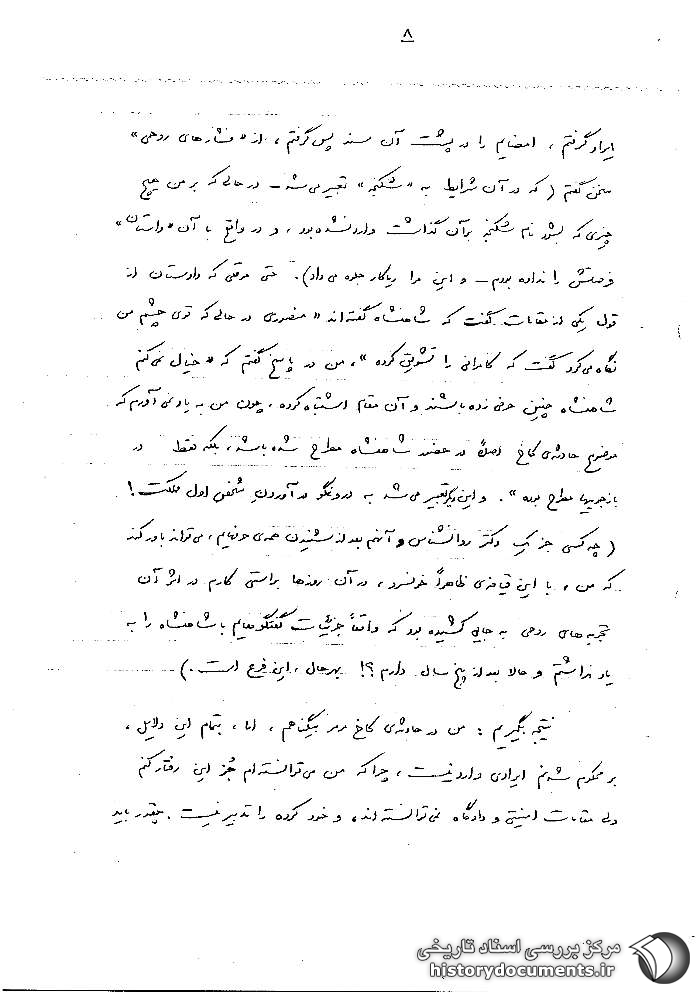 ۸
ایراد گرفتم ، امضایم را در پشت آن سند پس گرفتم ، از «فشارهای روحی»
سخن گفتم ( که در آن شرایط به «شکنجه» تعبیر می‌شد ــ در حالی که بر من هیچ
چیزی که بشود نام شکنجه بر آن گذاشت وارد نشده بود ، و در واقع با آن «داستان»
فرصتش را نداده بودم ــ و این مرا ریاکار جلوه می‌داد). حتی موقعی که دادستان از
قول یکی از مقامات گفت که شاهنشاه گفته‌اند « منصوری در حالی که توی چشم من
نگاه می‌کرد گفت که کامرانی را تشویق کرده » ، من در پاسخ گفتم که « خیال نمی‌کنم
شاهنشاه چنین حرفی زده باشند و آن مقام اشتباه کرده ، چون من به یاد نمی‌آورم که
موضوع حادثه‌ی کاخ اصلاً در حضور شاهنشاه مطرح شده باشد ، بلکه فقط در
بازجوییها مطرح بوده ». و این دیگر تعبیر می‌شد به دروغگو در آوردن شخص اول مملکت !
( چه کسی جز یک دکتر روانشناس و آنهم بعد از شنیدن همه‌ی حرفهایم ، می‌تواند باور کند
که من ، با این قیافه‌ی ظاهراً خونسرد ، در آن روزها براستی کارم در اثر آن
تجربه‌های روحی به جایی کشیده بود که واقعاً جزئیات گفتگوهایم با شاهنشاه را به
یاد نداشتم و حالا بعد از پنج سال دارم ؟! بهرحال ، این فرع است .)
نتیجه بگیریم : من در حادثه‌ی کاخ مرمر بیگناهم ، اما ، بتمام این دلایل ،
بر محکوم شدنم ایرادی وارد نیست ، چرا که من می‌توانسته‌ام جز این رفتار کنم
ولی مقامات امنیتی و دادگاه نمی‌توانسته‌اند ، و خود کرده را تدبیر نیست . چقدر باید
مرکز بررسی اسناد تاریخی
historydocuments.ir